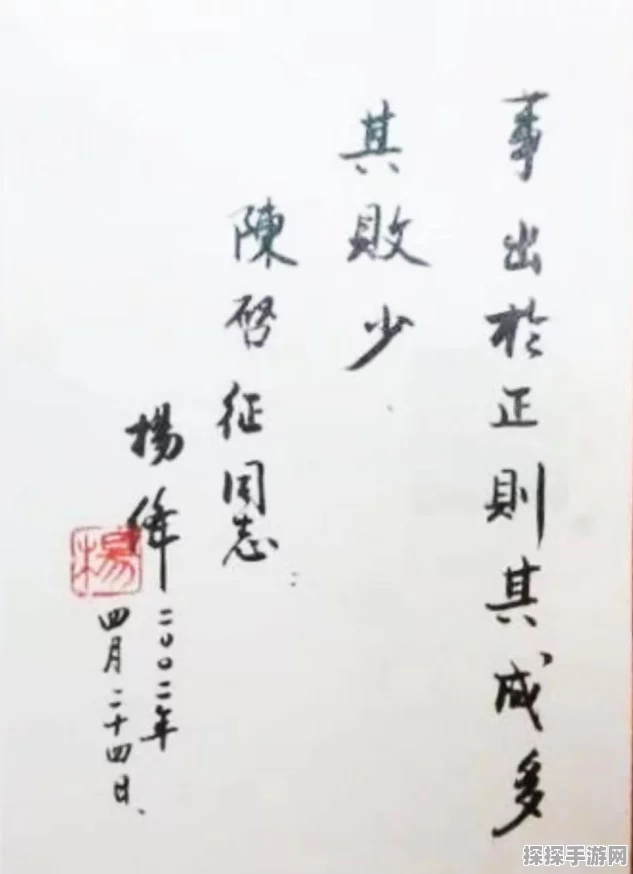 事出於正則其成多
其敗少
陳啓征同志
楊偉
二〇〇二年
四月二十四日、
楊
探探手游网